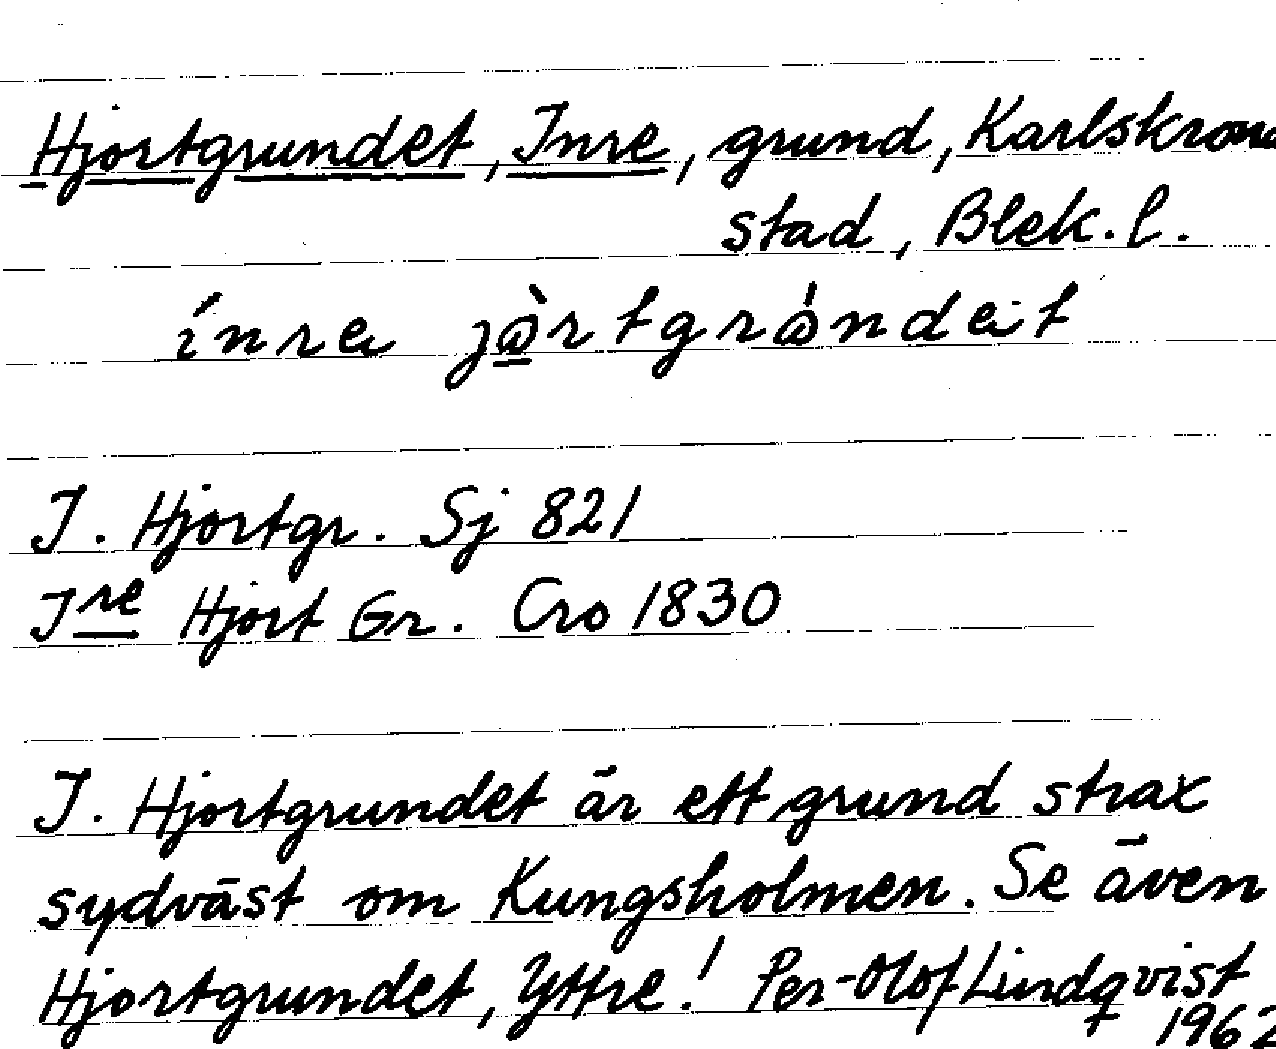 Hjortgrundet, Inre, grund, Karlskrona
stad, Blek. l.
J. Hjortgr. Sj 821
Jre Hjort Gr. Cro 1830
J. Hjortgrundet är ett grund strax
sydväst om Kungsholmen. Se även
Hjortgrundet, Yttre! Per-Olof Lindqvist
1962